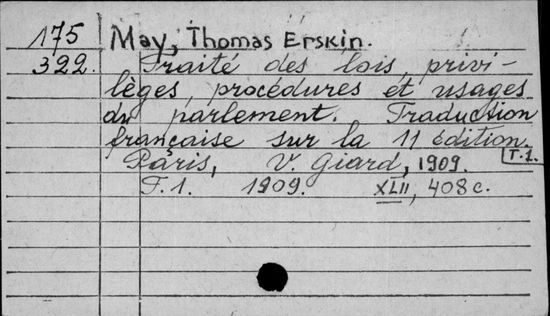 175 May, Thomas Erskin.
322. Traité des lois, privi-
lèges, procédures et usages
du parlement. Traduction
française sur la 11 édition.
Paris, V. Giard, 1909. T.1.
T.1. 1909. XLII, 408 c.